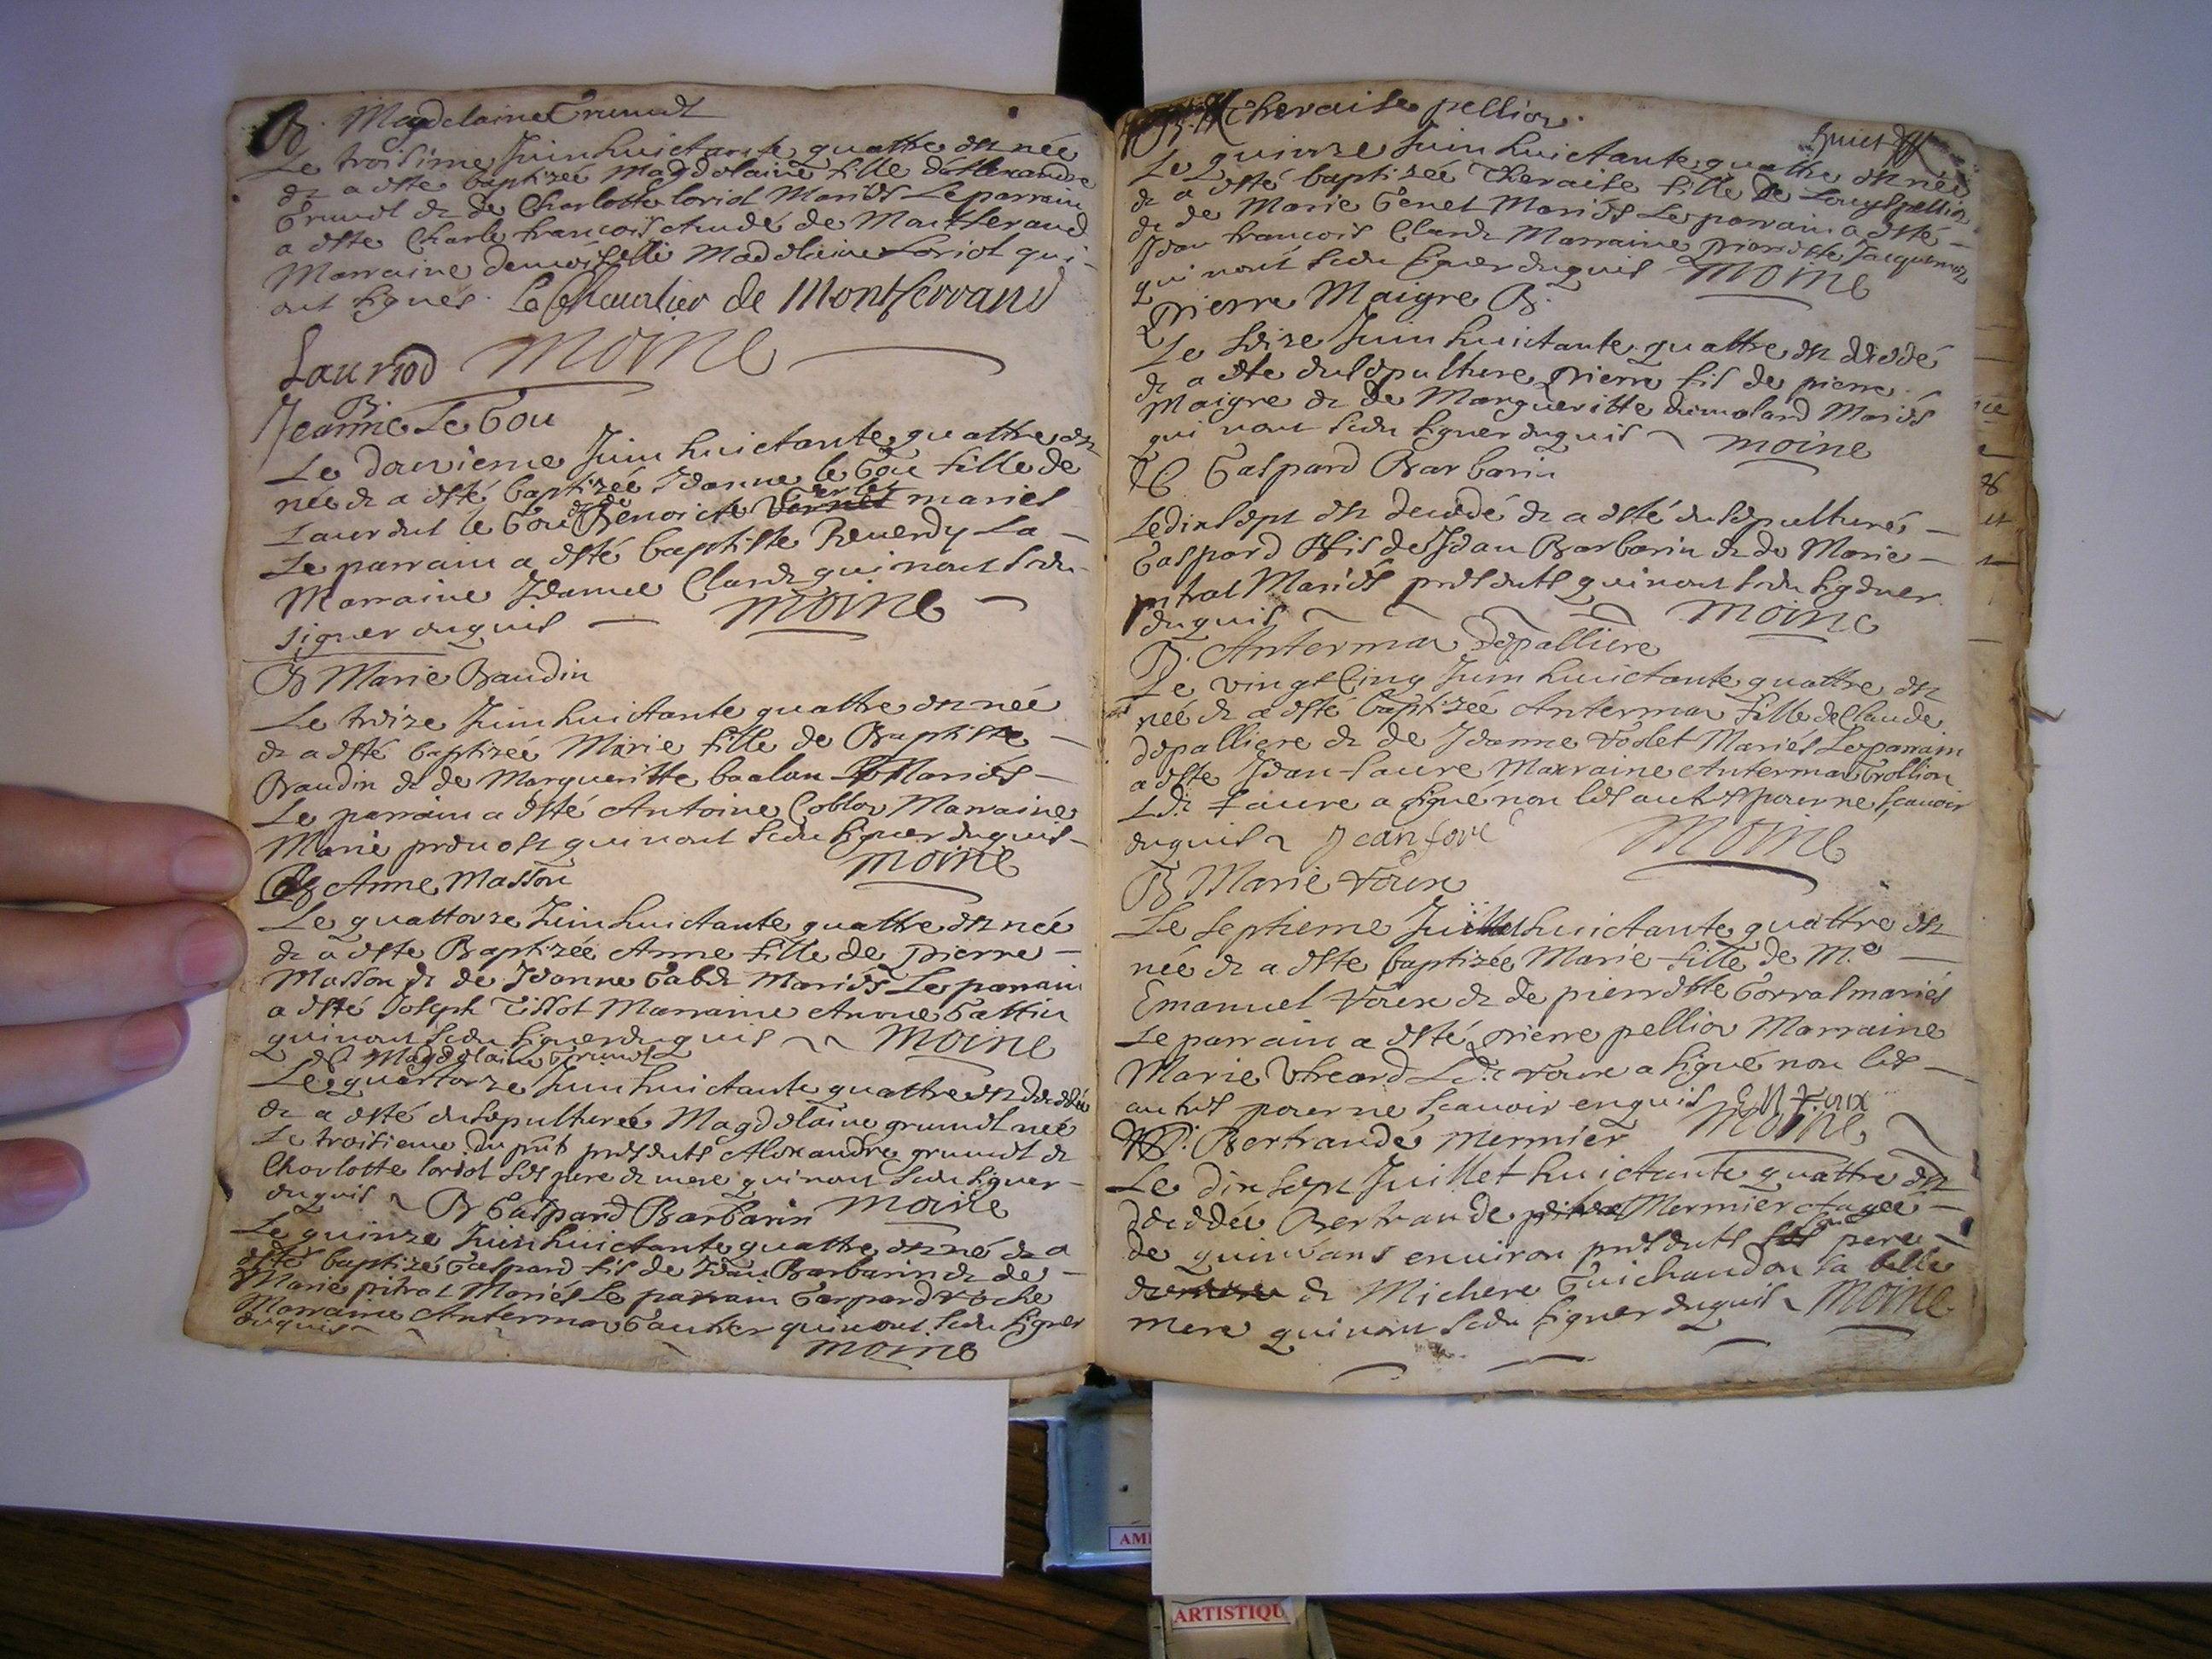 B. Magdelaine Grumet
Le troisime Juin huictante quattre est née
et a esté baptizée Magdelaine fille d'Alexandre
Grumet et de Charlotte loriol Mariés Le parrain
a esté Charle francois Aimdé de Montferrand
Marraine demoiselle Madelaine Loriol qui
ont signés. Le Cheualier de Montferrand
Lauriod Moine
B.
Jeanne Le Gou
Le douzieme Juin huictante quattre est
née et a esté baptizée Jeanne le Gou fille de
Laurent le Gou et de Benoicte mariés
Le parrain a esté baptiste Reuerdy La
Marraine Jeanne Clerc qui nont sceu
signer enquis Moine
B Marie Baudin
Le treize Juin huictante quattre est née
et a esté baptizée Marie fille de Baptiste
Baudin et de Margueritte baalon Mariés
Le parrain a esté Antoine Marraine
Marie preuost qui nont sceu signer enquis
Moine
B Anne Masson
Le quattorze Juin huictante quattre est née
et a esté Baptizée Anne fille de pierre
Masson et de Jeanne Mariés Le parrain
a esté Joseph Tissot Marraine Anne
qui nont sceu signer enquis Moine
Magdelaine Grumet
Le quattorze Juin huictante quattre est decedée
et a esté ensepulturée Magdelaine grumet née
Le troisieme du pnt presents Alexandre grumet et
Charlotte loriol ses pere et mere qui nont sceu signer
enquis Moine
B Gaspard Barbarin
Le quinze Juin huictante quattre est né et a
esté baptizé Gaspard fils de Jean Barbarin et de
Marie pitrat Mariés Le parrain Gaspard roche
Marraine Anterma Gautier qui nont sceu signer
enquis
Moine
B. Theraise pellion
Le quinze Juin huictante quattre est née
et a esté baptizée Theraise fille de Louys pellion
et de Marie Genet Mariés Le parrain a esté
Jean francois Clerc Marraine pierrette Jacquemet
qui nont sceu signer enquis Moine
Pierre Maigre
Le seize Juin huictante quattre est decedé
et a esté ensepulturé pierre fils de pierre
Maigre et de Margueritte dumolard Mariés
qui nont sceu signer enquis Moine
Gaspard Barbarin
Le dix sept est decedé et a esté ensepulturé
Gaspard fils de Jean Barbarin et de Marie
pitrat Mariés presents qui nont sceu signer
enquis Moine
B. Anterma Depalliere
Le vingt cinq Juin huictante quattre est
née et a esté baptizée Anterma fille de Claude
depalliere et de Jeanne Mariés Le parrain
a esté Jean faure Marraine Anterma Trollion
Led. faure a signé non les autres pour ne scauoir
enquis Jean fore Moine
B Marie roux
Le septieme Juillet huictante quattre est
née et a esté baptizée Marie fille de Me
Emanuel roux et de pierrette Gorrat mariés
Le parrain a esté pierre pellion Marraine
Marie Led. roux a signé non les
autres pour ne scauoir enquis E roux
Moine
Bertrande Mermier
Le dix sept Juillet huictante quattre est
decedée Bertrande Mermier agee
de quinze ans enuiron presents son pere
et Michere Guichandon sa belle
mere qui nont sceu signer enquis Moine
AMI
ARTISTIQU